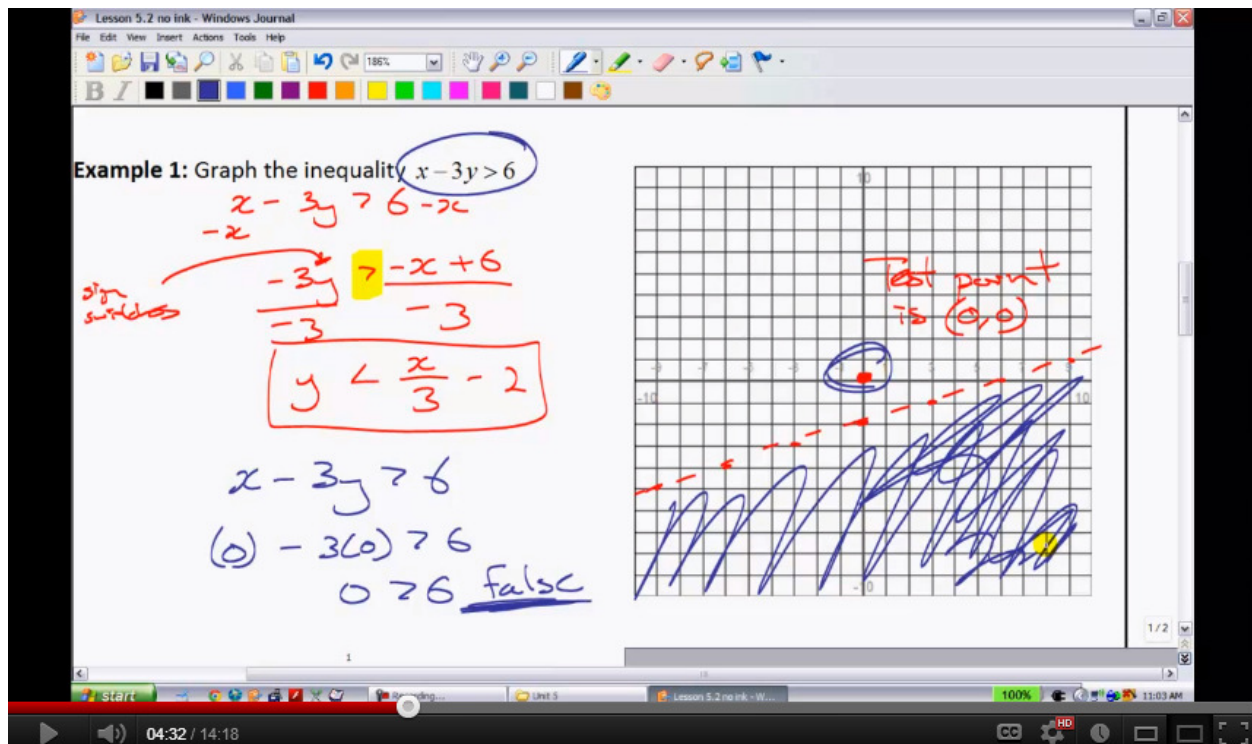 Lesson 5.2 no ink - Windows Journal
File Edit View Insert Actions Tools Help
186%
B I
Example 1: Graph the inequality x − 3y > 6
x - 3y > 6 -x
-x
sign
switches
-3y > -x + 6
-3 -3
y < x/3 - 2
x - 3y > 6
(0) - 3(0) > 6
0 > 6 false
10
Test point
is (0,0)
-9 -7
-10 10
-10
1/2
1
start
Unit 5
Lesson 5.2 no ink - W...
100%
11:03 AM
04:32 / 14:18
CC
HD